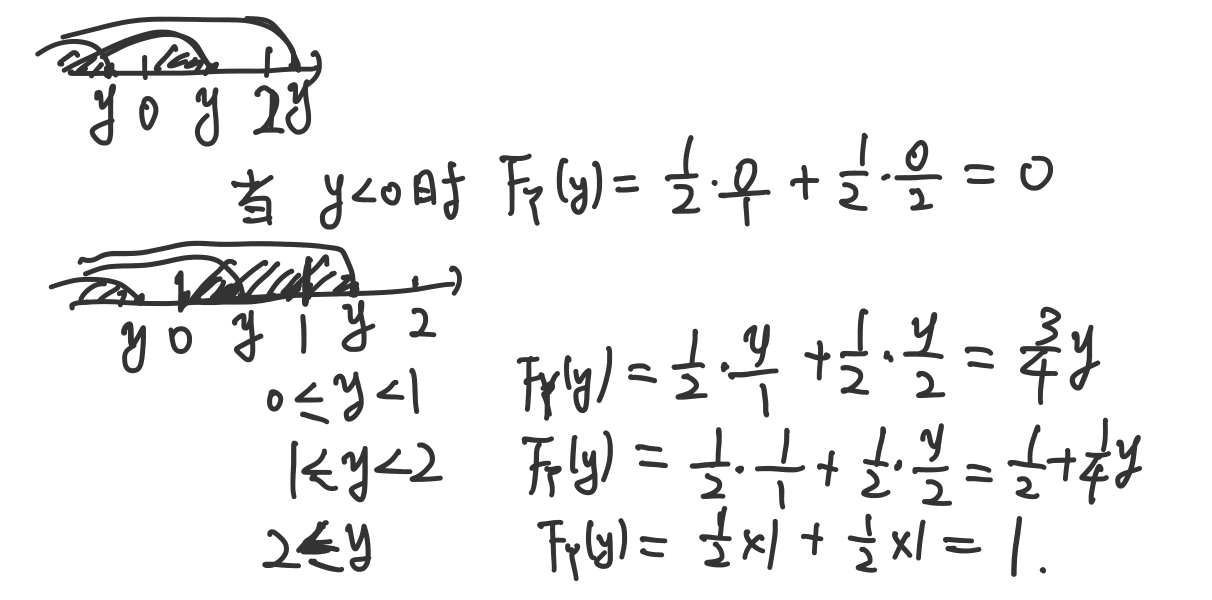 y 0 y 2 y
当 y<0时 F_Y(y) = 1/2 · 0/1 + 1/2 · 0/2 = 0
y 0 y 1 y 2
0 ≤ y < 1 F_Y(y) = 1/2 · y/1 + 1/2 · y/2 = 3/4 y
1 ≤ y < 2 F_Y(y) = 1/2 · 1/1 + 1/2 · y/2 = 1/2 + 1/4 y
2 ≤ y F_Y(y) = 1/2 × 1 + 1/2 × 1 = 1.